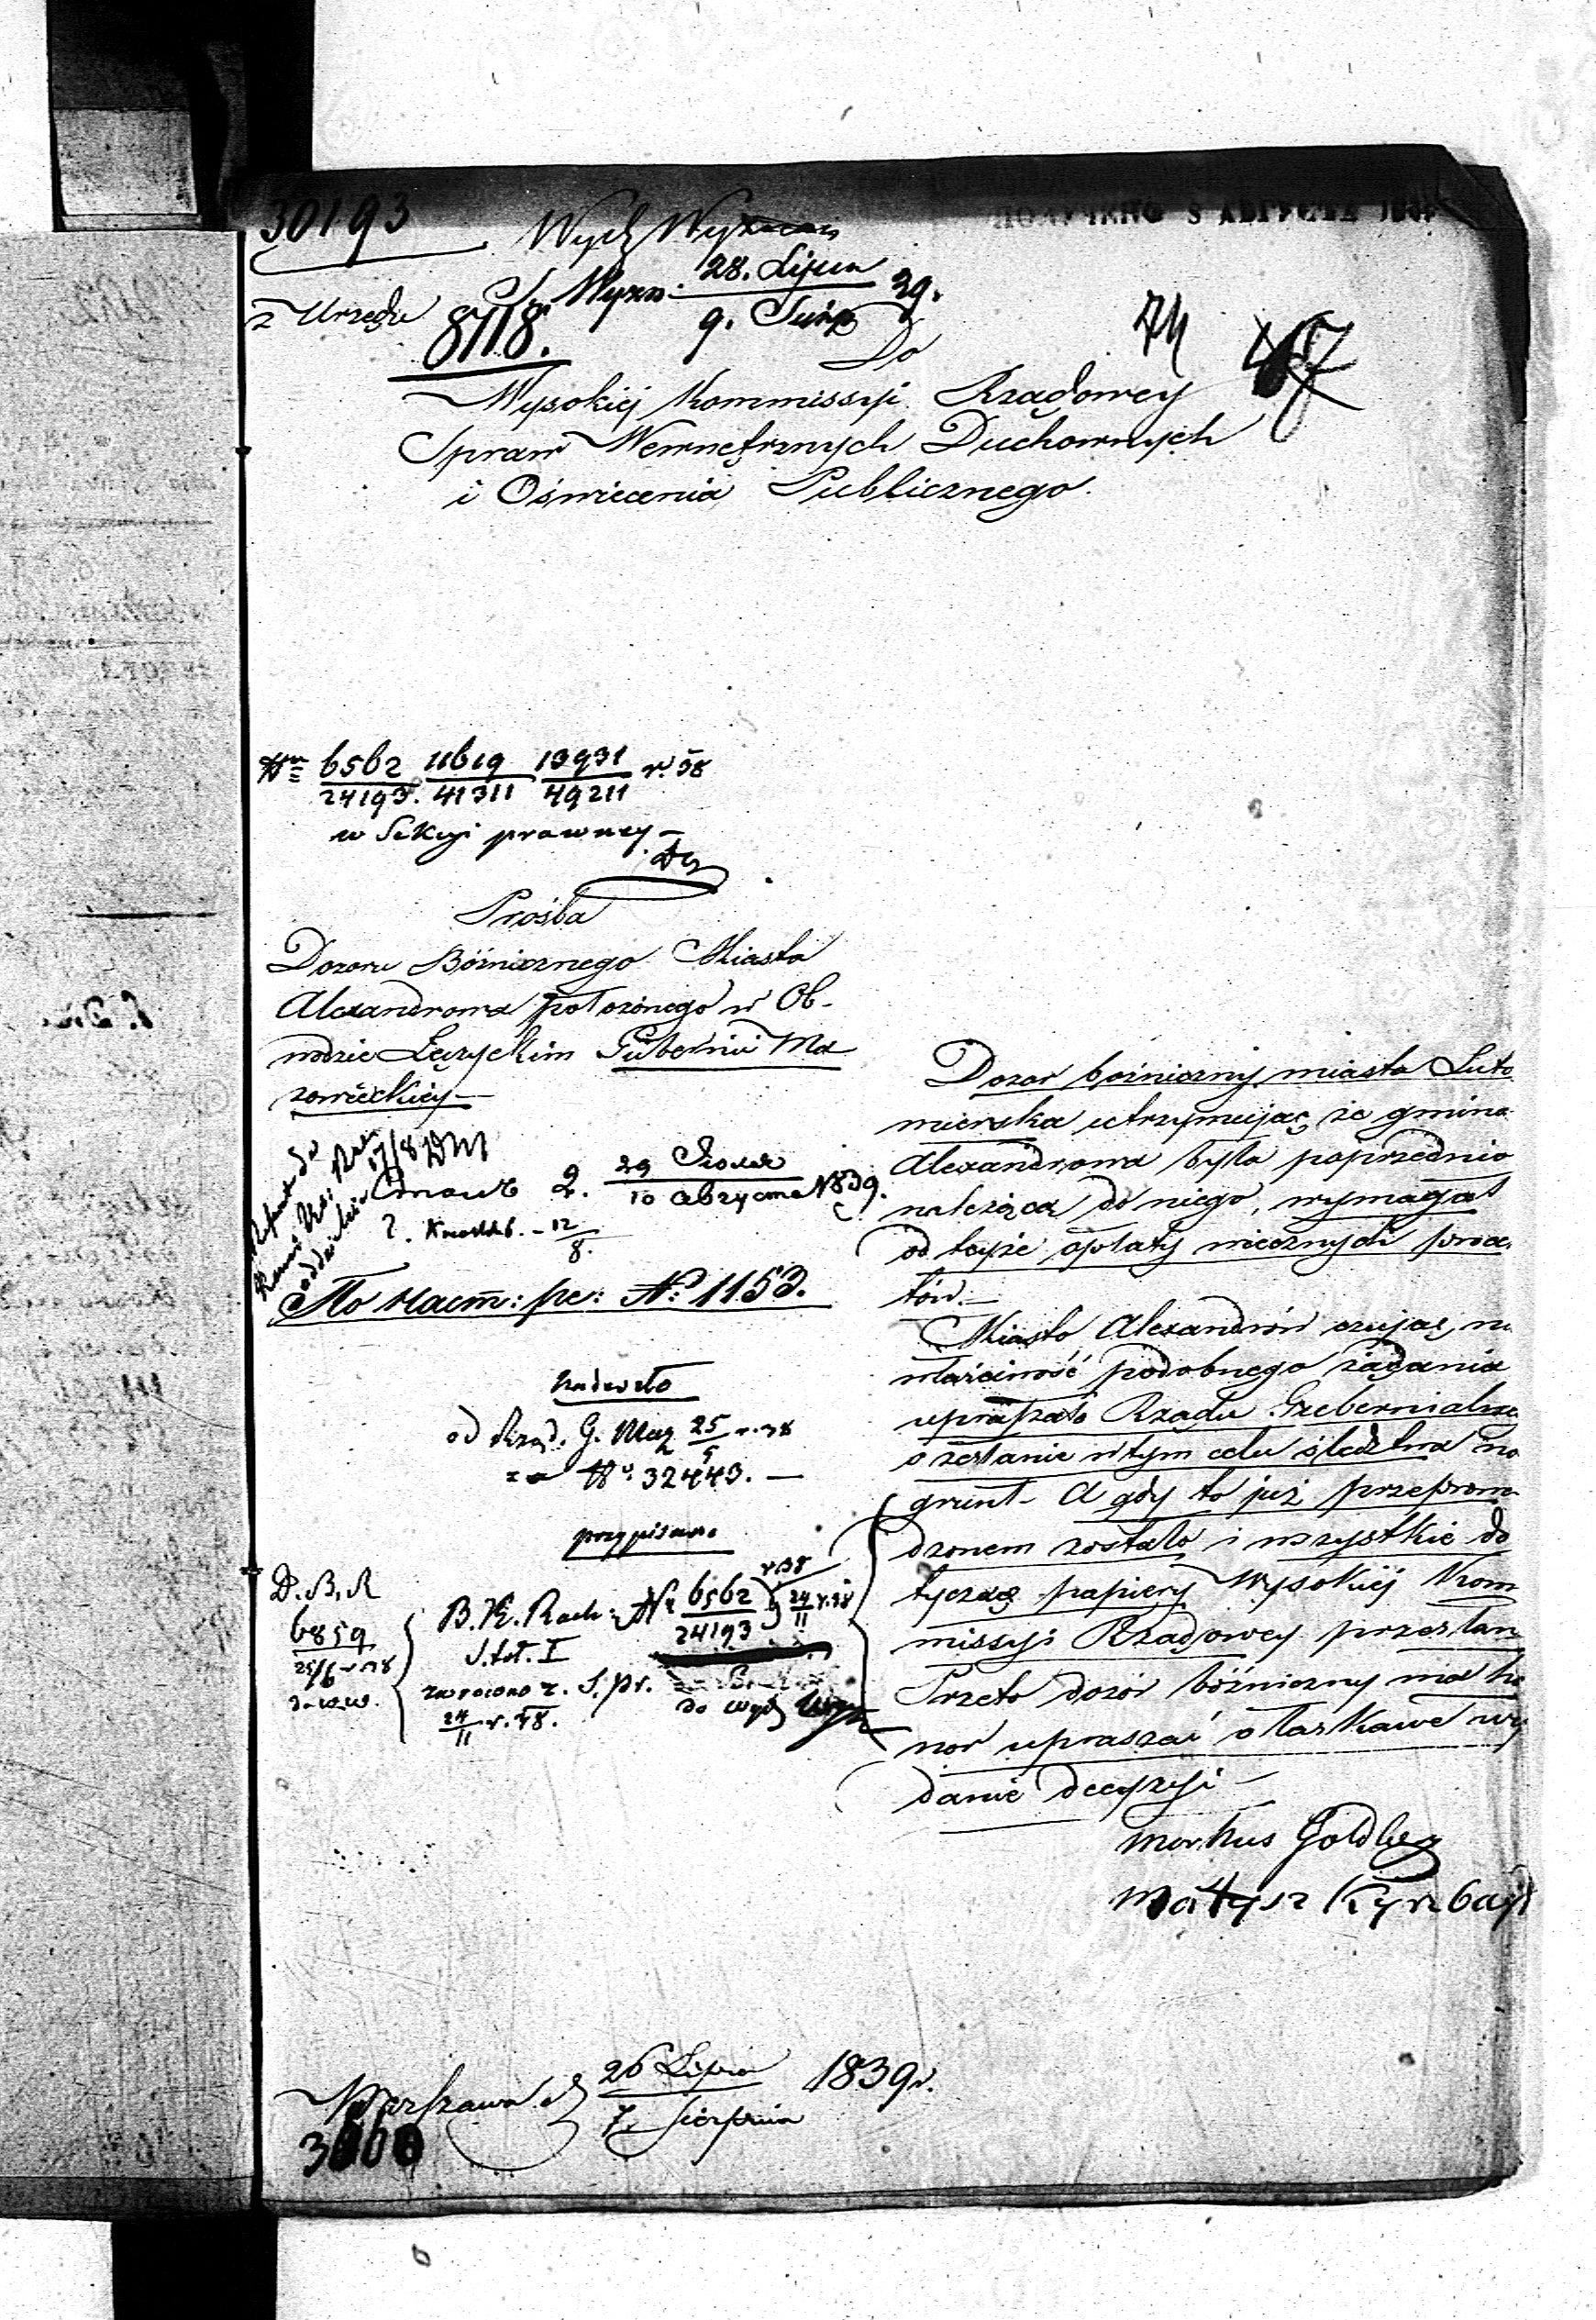 30193
Wydz
z Urzędu 8118. 28. Lipca 39.
9. Sierp
74
Do
Wysokiéj Kommissyi Rządowey
Spraw Wewnętrznych Duchownych
i Oświecenia Publicznego.
6562 11619 13931 r. 38
24193. 41311 49211
w Sekcyi prawney –
Prośba
Dozoru Bóżnicznego Miasta
Alexandrowa położonego w Ob-
wodzie Łęczyckim Gubernii Ma
zowieckiéj –
17/8
2. 29 Іюля
10 Августа 1839.
12
8.
По наст: ре: №: 1153.
nadeszło
od Rząd. G. Maz 25 r. 38
5
za Nr 32443. –
przypisano
D. B. R
6859
25/6 r. 38
B. K. Rach: Nr 6562 r. 38 24 r. 38
24193 11
zwrócono z S. pr.
24 r. 38.
11
do wydz
Dozór bóżniczny miasta Luto
mierska utrzymując że gmina
Alexandrowa była poprzednio
należąca do niego, wymagał
od teyże opłaty wiecznych kwia
tów. –
Miasto Alexandrów czując nie
właściwość podobnego żądania
upraszało Rządu Gubernialne
o zesłanie w tym celu śledztwa na
grunt – A gdy to już przeprowa
dzonem zostało i wszystkie do
tyczące papiery Wysokiéj Kom
missyi Rządowey przesłan
Przeto dozór bóżniczny ma ho
nor upraszać o łaskawe wy
danie decyzyi –
Markus Goldberg
Matysz
Warszawa d 26 Lipca 1839 r.
7. Sierpnia